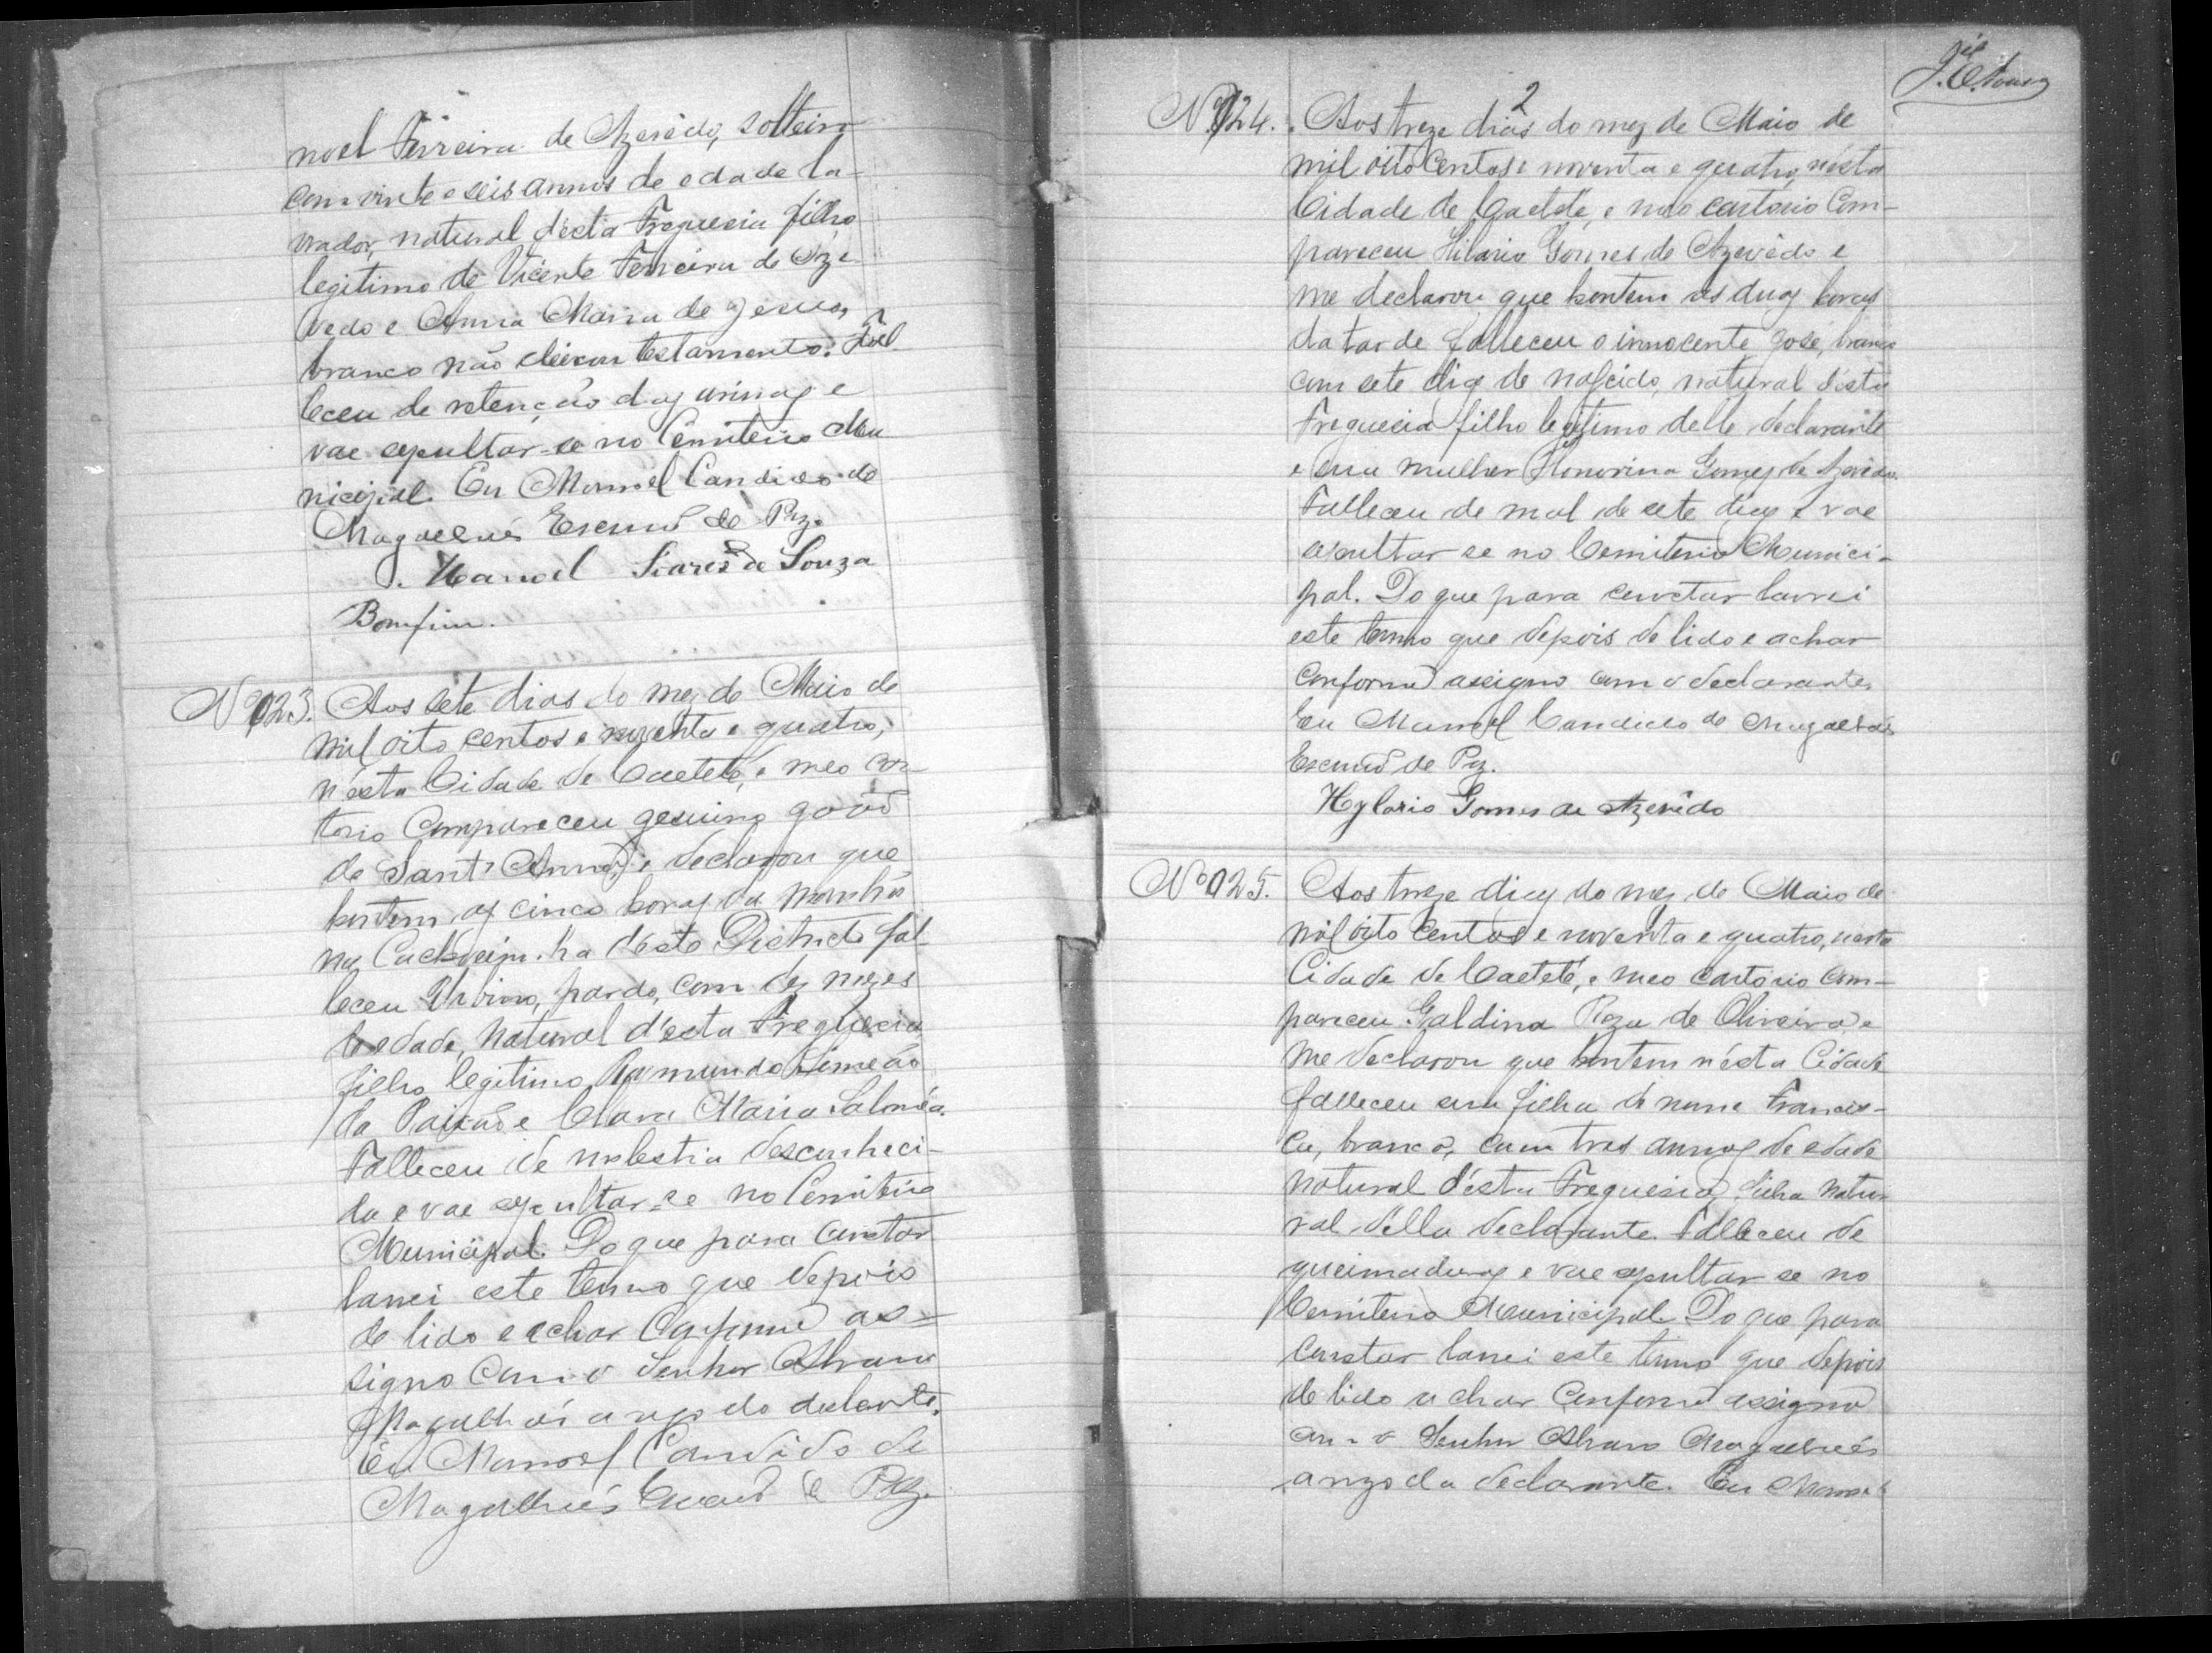 noel Ferreira de Azevêdo, solteiro
com vinte e seis annos de edade la-
vrador, natural d'esta Freguesia filho
legitimo de Vicente Ferreira de Aze-
vedo e Anna Maria de Jesus,
branco não deixou testamento. Fal
leceu de retenção das urinas e
vae sepultar-se no Cemiterio Mu
nicipal. Eu Manoel Candido de
Magalhães Escrivão de Paz.
Manoel Soares de Souza
Bomfim.
Nº 123. Aos sete dias do mez de Maio de
mil oito centos e noventa e quatro,
n'esta Cidade de Caeteté, e meo car
torio Compareceu Jesuino João
de Sant'Anna, e declarou que
hontem as cinco horas da manhã
na Cachoeirinha d'este Districto fal
leceu pardo, com dez mezes
de edade, natural d'esta Freguezia
filho legitimo Raimundo Simeão
da Paixão e Clara Maria Salomé.
Falleceu de molestia desconheci-
da e vae sepultar-se no Cemiterio
Municipal. Do que para constar
lavrei este termo que depois
de lido e achar Conforme as-
signo com o Senhor Alvaro
Magalhães a rogo do declarante.
Eu Manoel Candido de
Magalhães Escrivão de Paz.
2
Nº 124. Aos treze dias do mez de Maio de
mil oito centos e noventa e quatro, nésta
Cidade de Caeteté, e meo cartorio Com-
pareceu Hilario Gomes de Azevêdo e
me declarou que hontem as duas horas
da tarde falleceu o innocente José, branco
com sete dias de nascido, natural d'esta
Freguesia filho legitimo delle declarante
e sua mulher Honorina Gomes de Azevêdo.
Falleceu de mal de sete dias e vae
sepultar se no Cemiterio Munici-
pal. Do que para constar lavrei
este termo que depois de lido e achar
Conforme assigno com o declarante.
Eu Manoel Candido de Magalhães
Escrivão de Paz.
Hylario Gomes de Azevêdo
Nº 125. Aos treze dias do mez de Maio de
mil oito centos e noventa e quatro, nesta
Cidade de Caeteté, e meo cartorio com-
pareceu Galdina Roza de Oliveira, e
me declarou que hontem nésta Cidade
falleceu sua filha de nome Francis-
ca, branca, com tres annos de edade
natural d'ésta Freguesia, filha natu-
ral della declarante. Falleceu de
queimaduras e vae sepultar se no
Cemiterio Municipal. Do que para
constar lavrei este termo que depois
de lido achar Conforme assigno
com o Senhor Alvaro Magalhães
a rogo da declarante. Eu Manoel